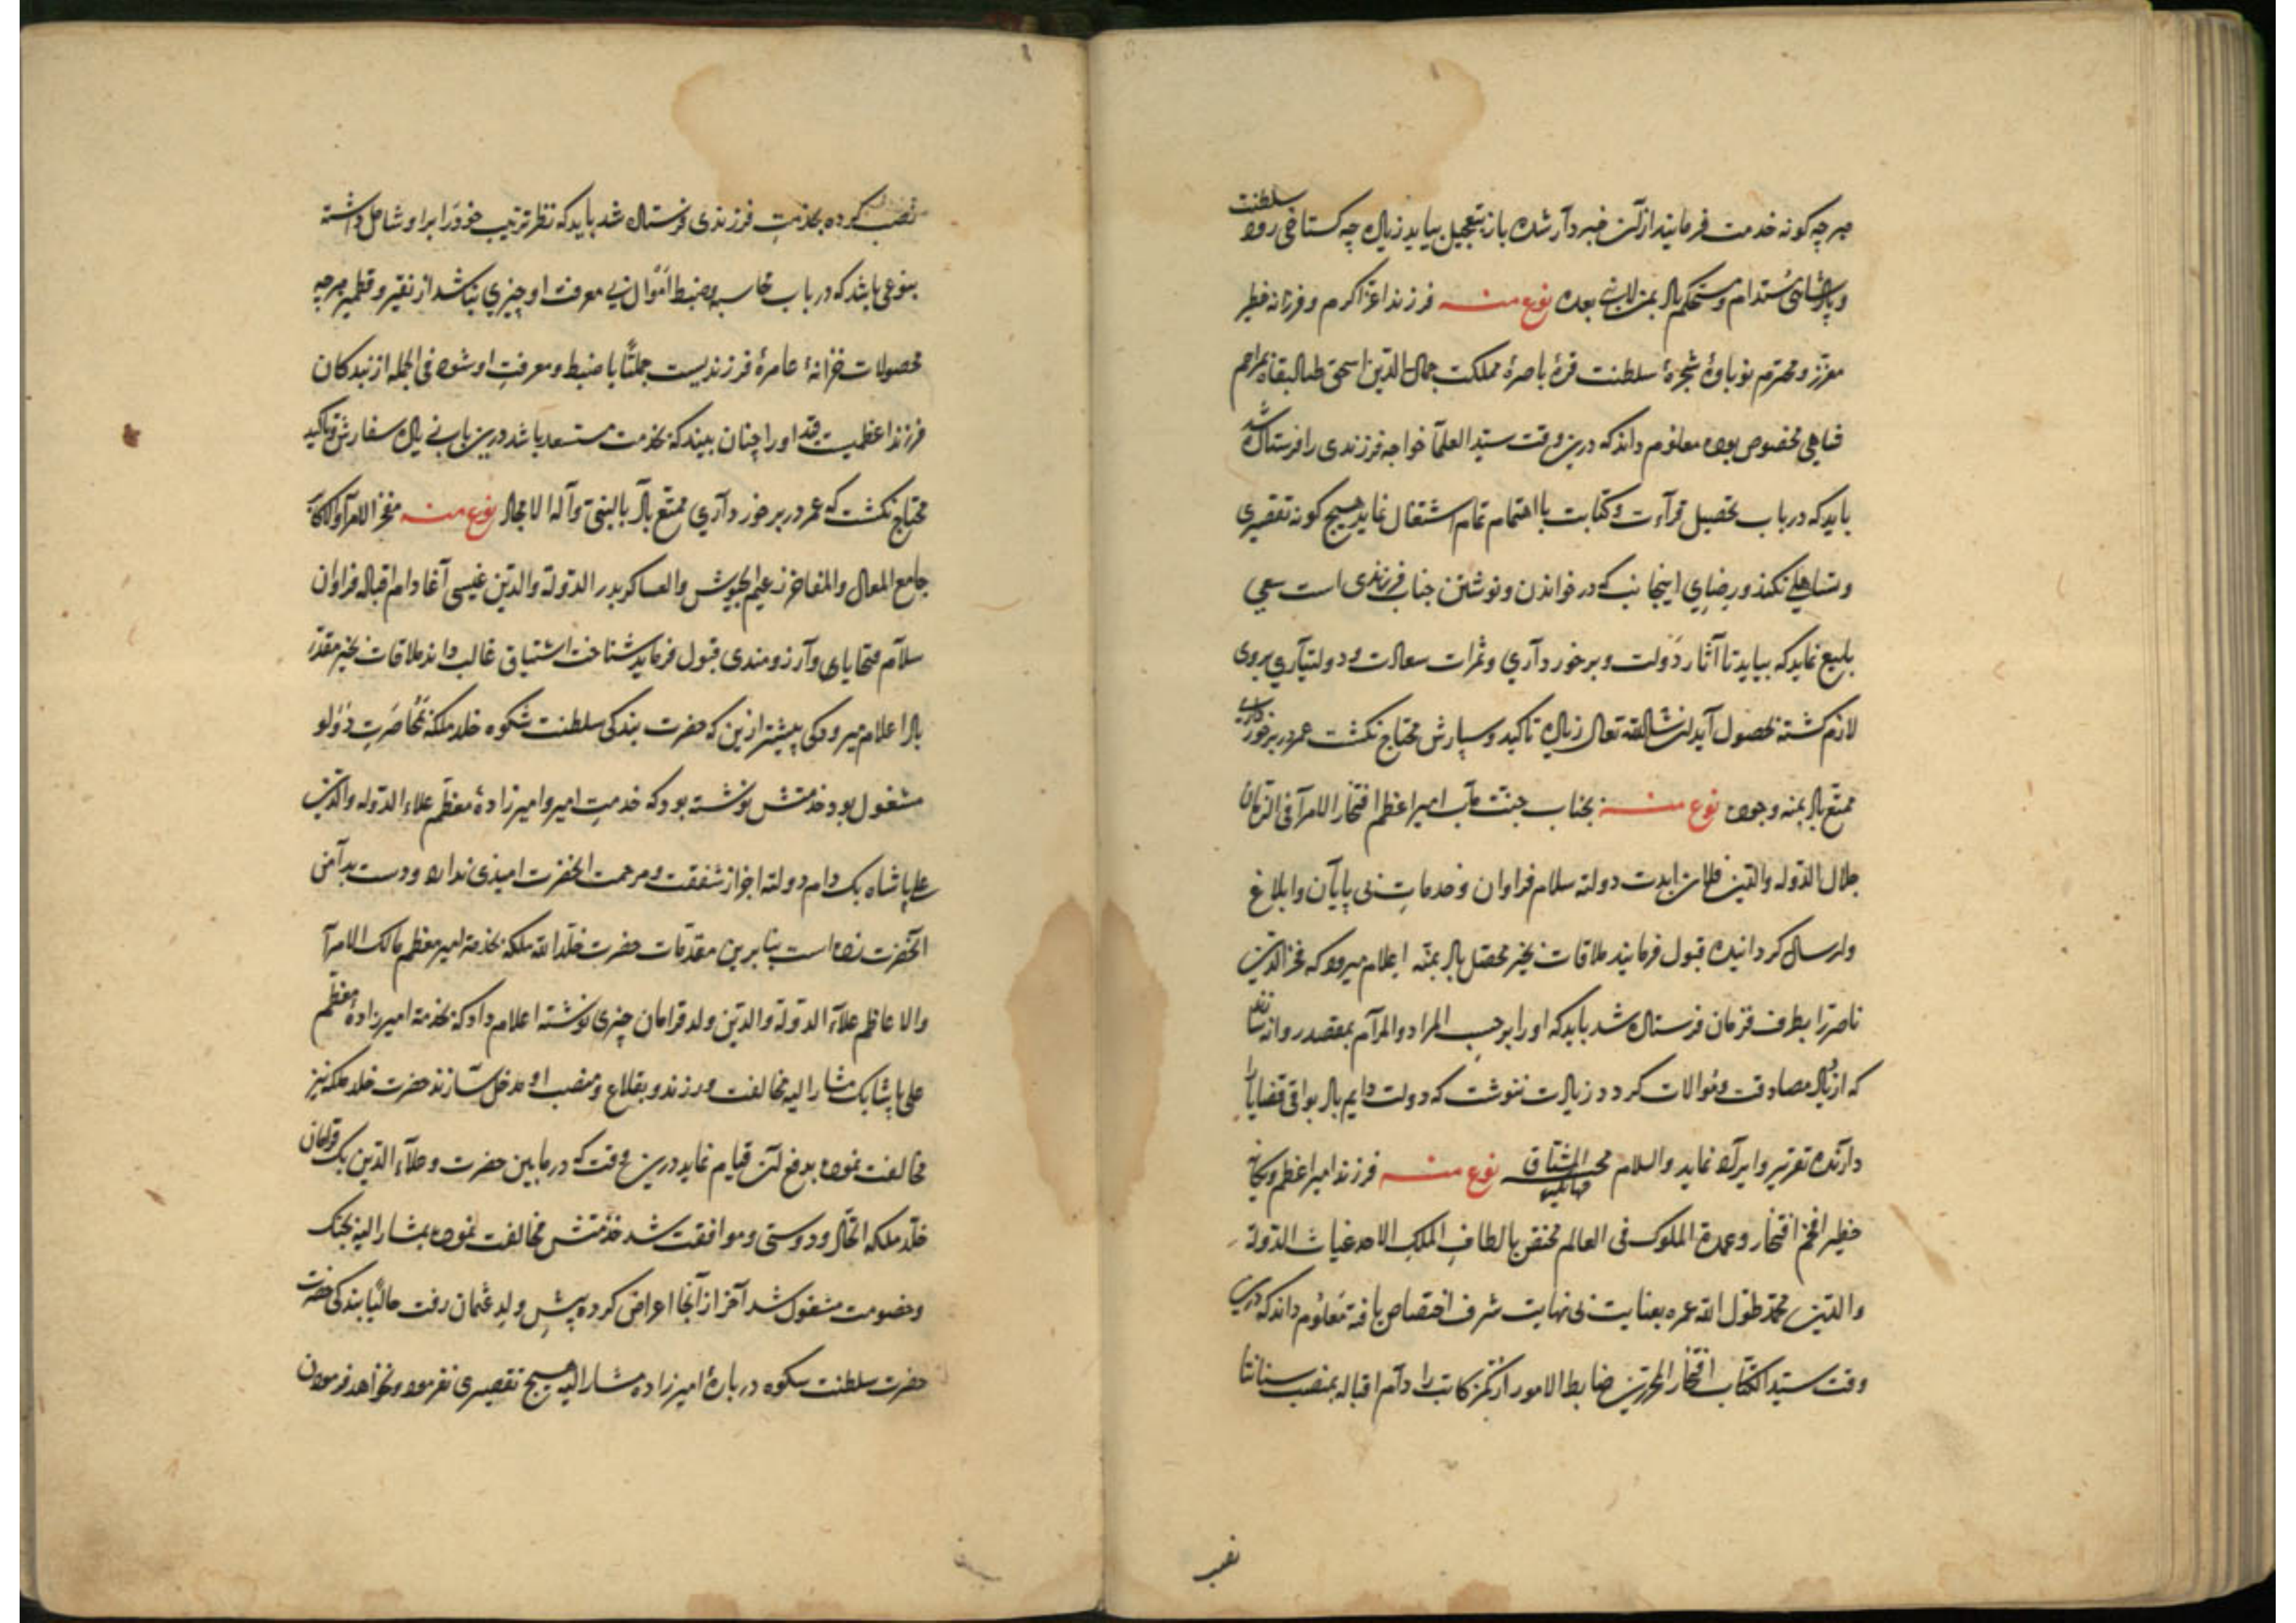 هرچه کونه خدمت فرمایند ازآن خبردار شده باز بتعجیل بیاید زیاده چه کستاخی رود سلطنت
و پادشاهی مستدام و مستحکم باد بمن لا نبی بعده نوع منه فرزند اعز اکرم و فرزانه خطیر
معزز و محترم نوباوۀ شجرۀ سلطنت قرۀ باصرۀ مملکت جمال الدین اسحق طال بقاه بمراحم
مخصوص بوده معلوم داند که درین وقت سید العلما خواجه فرزندی را فرستاده شد
باید که در باب تحصیل قرآءت و کتابت با اهتمام تمام اشتغال نماید هیچ کونه تقصیری
و تساهلی نکند و رضای اینجانب که در خواندن و نوشتن جناب فرزندی است سعی
بلیغ نماید که بیاید تا آثار دولت و برخورداری و ثمرات سعادت و دولتیاری بروی
لازم کشته بحصول آید ان شاء الله تعالی زیاده تاکید و سپارش محتاج نکشت عمر در برخورداری
ممتع باد بمنه وجوده نوع منه بجناب جنت مآب امیر اعظم افتخار الامرآ فی الزمان
جلال الدوله والدین فلان ابدت دولته سلام فراوان و خدمات بی پایان و ابلاغ
و ارسال کردانیده قبول فرمایند ملاقات بخیر محصل باد بمنه اعلام میرود که فخر الدین
ناصر را بطرف قرمان فرستاده شد باید که او را برحسب المراد والمرام بمقصد روانه
که ازدیاد مصادقت و موالات کردد زیادت ننوشت که دولت دایم باد بواقی قضایا را
دارنده تقریر وایراد نماید والسلام محب المشتاق نوع منه فرزند امیر اعظم و یکانه
خطیر افخم افتخار و عمدة الملوک فی العالم مختص بالطاف الملک الاحد غیاث الدولة
والدین محمد طول الله عمره بعنایت بی نهایت شرف اختصاص یافته معلوم داند که درین
وقت سید الکتاب افتخار المحررین ضابط الامور کاتب را دام اقباله بمنصب
نصب
نصب کرده بخدمت فرزندی فرستاده شد باید که نظر تربیت خود را برا و شامل داشته
بنوعی باشد که در باب محاسبه و ضبط اموال بی معرفت او چیزی نباشد از نقیر و قطمیر هرچه
محصولات خزانۀ عامرۀ فرزندیست جملتا با ضبط و معرفت او شود فی الجمله از بندکان
فرزند اعظمیت قد او را چنان بیند که بخدمت مستعد باشد درین باب زیاده سفارش و تاکید
محتاج نکشت که عمر در برخورداری ممتع باد بالنبی و آله الامجاد نوع منه مفخر الامرآ والاکابر
جامع المعالی والمفاخر زعیم الجیوش والعساکر بدر الدولة والدین عیسی آغا دام اقباله فراوان
سلام و تحایای و آرزومندی قبول فرماید شناخت اشتیاق غالب داند ملاقات بخیر مقدر
باد اعلام میرود کی پیشتر ازین که حضرت بندکی سلطنت شکوه خلد ملکه بمحاصرت دولو
مشغول بود خدمتش نوشته بود که خدمت امیر و امیرزادۀ معظم علاء الدوله والدین
علی پاشاه بک دام دولته اجواز شفقت و مرحمت انحضرت امیدی ندارد و دست بدامن
انحضرت زده است بنابرین مقدمات حضرت خلد الله ملکه بخدمة امیر معظم مالک الامرآ
والاعاظم علاء الدولة والدین ولد قرامان چیزی نوشته اعلام داد که بخدمة امیرزادۀ معظم
علی پاشا بک مشار الیه مخالفت ورزند و بقلاع و منصب او مدخل سازند حضرت خلد ملکه نیز
مخالفت نموده بدفع آن قیام نماید درین وقت که درمابین حضرت و علاء الدین بک قرامان
خلد ملکه اتحاد و دوستی و موافقت شد خدمتش مخالفت نموده بمشار الیه بجنک
و خصومت مشغول شد آخر ازآنجا اعراض کرده پیش ولد عثمان رفت حالیا بندکی حضرت
حضرت سلطنت شکوه دربارۀ امیرزاده مشار الیه هیچ تقصیری نفرمود و نخواهد فرمودن